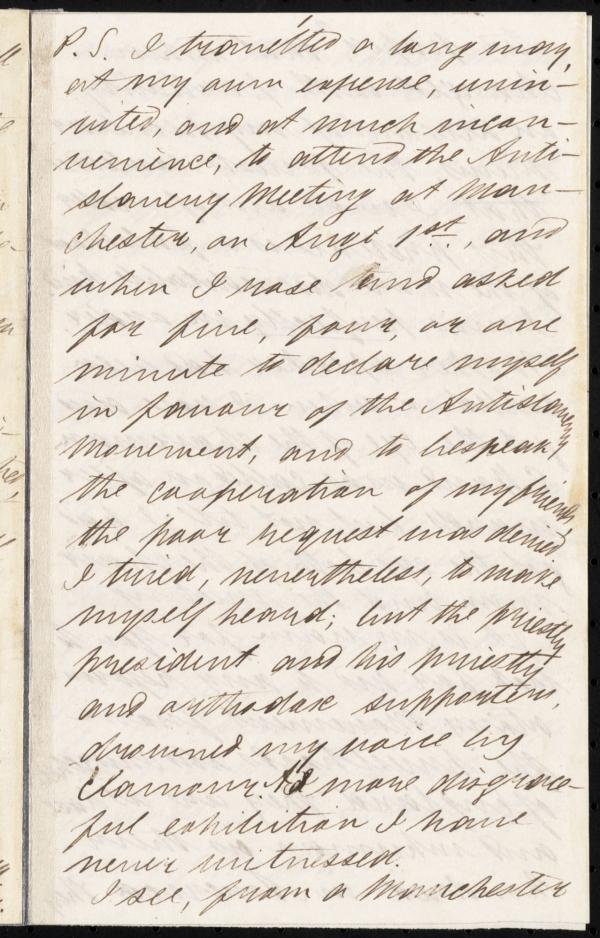 P.S. I travelled a long way,
at my own expense, unin-
vited, and at much incon-
venience, to attend the Anti-
slavery Meeting at Man-
chester, on Augt 1st, and
when I rose and asked
for five, four, or one
minute to declare myself
in favour of the Antislavery
Movement, and to bespeak
the cooperation of my friends,
the poor request was denied
I tried, nevertheless, to make
myself heard; but the priestly
president and his priestly
and orthodox supporters,
drowned my voice by
Clamour. A more disgrace-
ful exhibition I have
never witnessed.
I see, from a Manchester